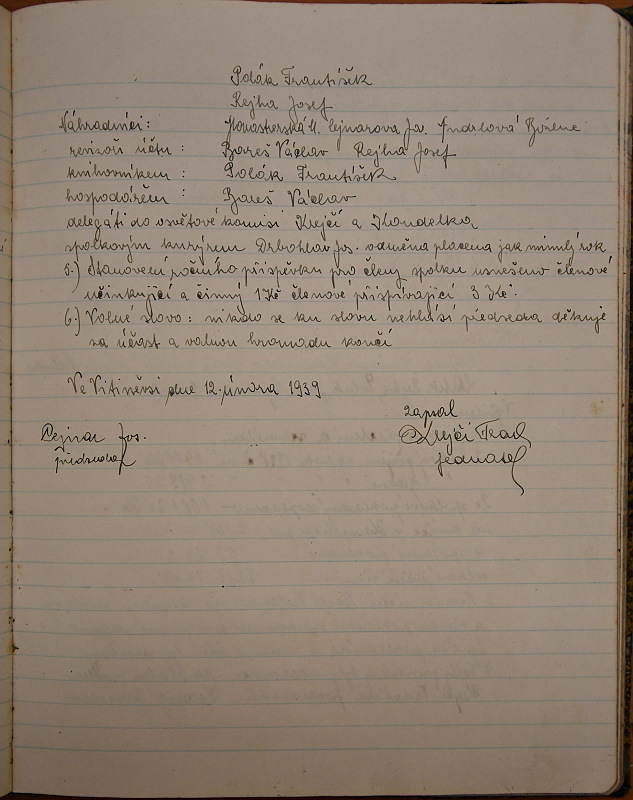 Polák František
Rejha Josef
Náhradníci: M. Lejnarova Ja. Božena
revizoři účtu: Bareš Václav Rejha Josef
knihovníkem: Polák František
hospodářem: Bareš Václav
delegáti do osvětové komisi Krejčí a Kondelka
spolkovým kurýrem Drbohlav Jos. odměna placena jak minulý rok
5.) Stanovení ročního příspěvku pro členy spolku usnešeno členové
učinkující a činný 1 Kč členové přispívající 3 Kč.
6.) Volné slovo: nikdo se ku slovu nehlásí předseda děkuje
za účast a valnou hromadu končí
Ve Vitiněvsi dne 12. února 1939
zapsal
Lejnar Jos. Krejčí
předseda jednatel